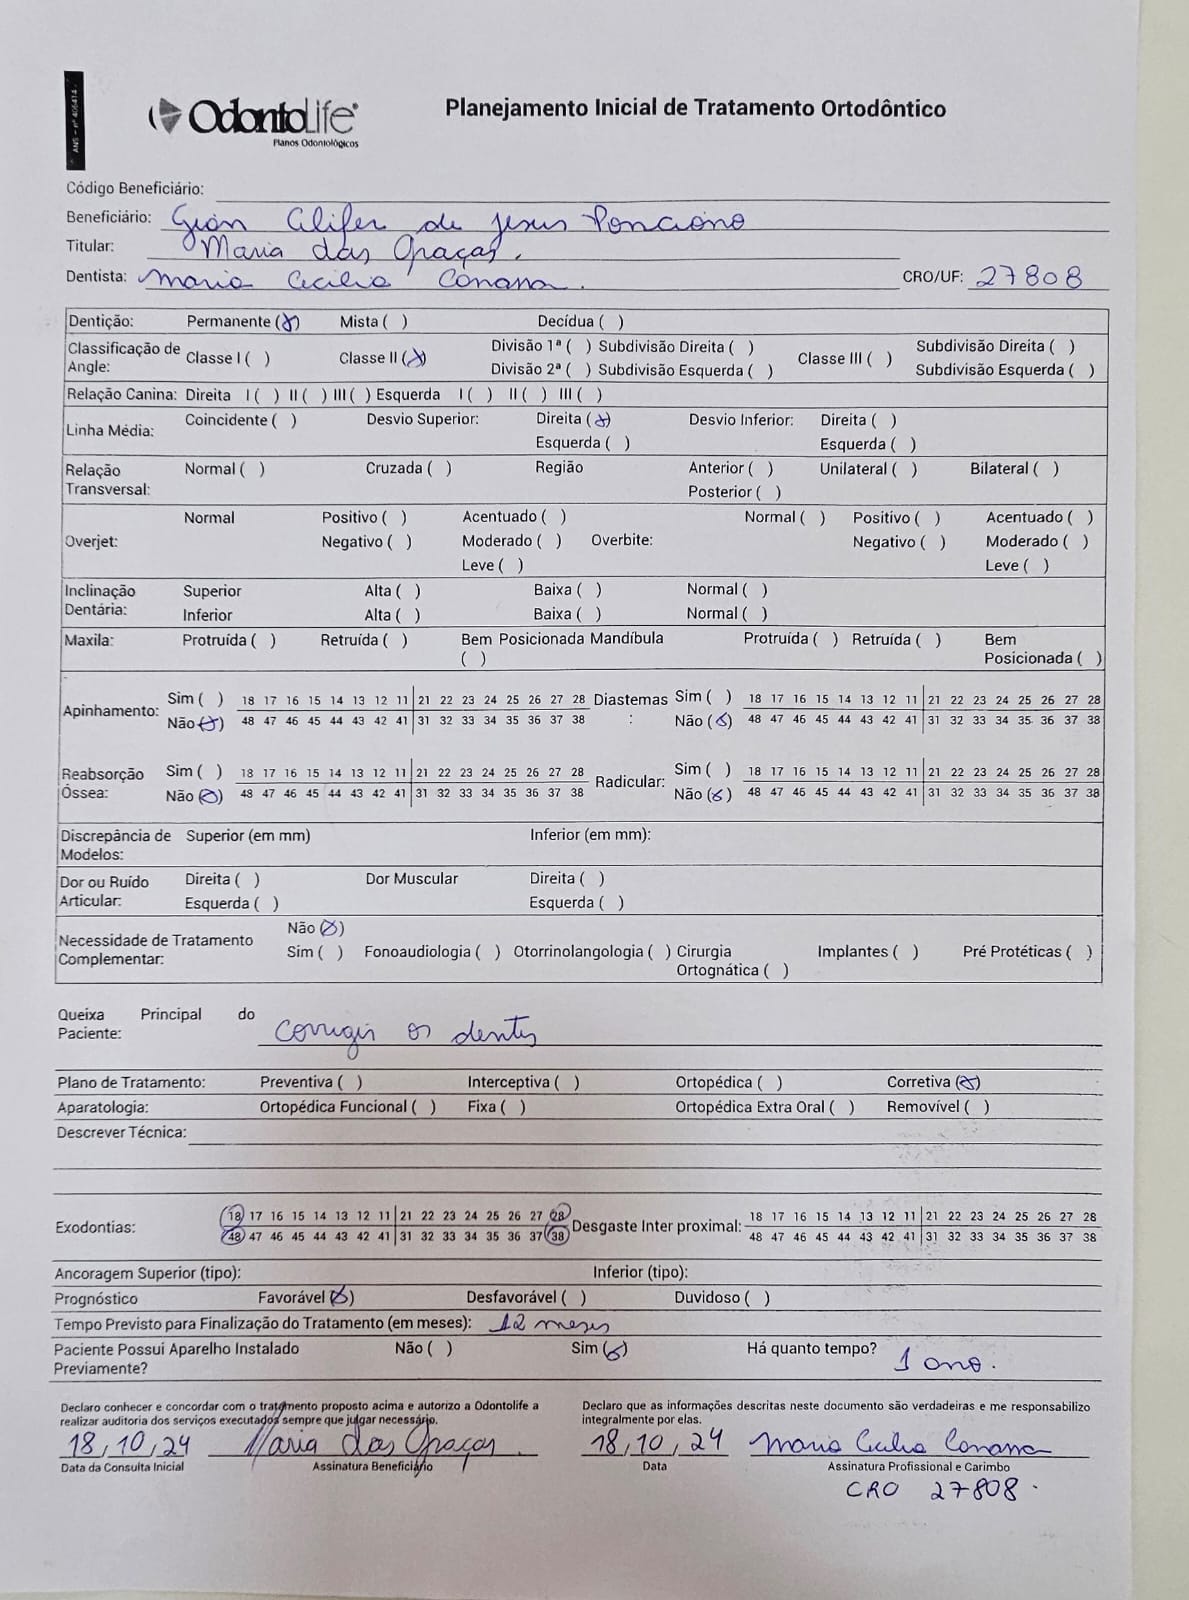 ANS - nº 406414
OdontoLife®
Planos Odontológicos
Planejamento Inicial de Tratamento Ortodôntico
Código Beneficiário:
Beneficiário: Gian Clifer de Jesus Ponciano
Titular: Maria das Graças.
Dentista: Maria Cecilia CRO/UF: 27808
Dentição: Permanente (x) Mista ( ) Decídua ( )
Classificação de Angle: Classe I ( ) Classe II (x) Divisão 1ª ( ) Subdivisão Direita ( ) Classe III ( ) Subdivisão Direita ( )
Divisão 2ª ( ) Subdivisão Esquerda ( ) Subdivisão Esquerda ( )
Relação Canina: Direita I ( ) II ( ) III ( ) Esquerda I ( ) II ( ) III ( )
Linha Média: Coincidente ( ) Desvio Superior: Direita (x) Desvio Inferior: Direita ( )
Esquerda ( ) Esquerda ( )
Relação Transversal: Normal ( ) Cruzada ( ) Região Anterior ( ) Unilateral ( ) Bilateral ( )
Posterior ( )
Overjet: Normal Positivo ( ) Acentuado ( ) Overbite: Normal ( ) Positivo ( ) Acentuado ( )
Negativo ( ) Moderado ( ) Negativo ( ) Moderado ( )
Leve ( ) Leve ( )
Inclinação Dentária: Superior Alta ( ) Baixa ( ) Normal ( )
Inferior Alta ( ) Baixa ( ) Normal ( )
Maxila: Protruída ( ) Retruída ( ) Bem Posicionada ( ) Mandíbula Protruída ( ) Retruída ( ) Bem Posicionada ( )
Apinhamento: Sim ( ) 18 17 16 15 14 13 12 11 21 22 23 24 25 26 27 28 Diastemas: Sim ( ) 18 17 16 15 14 13 12 11 21 22 23 24 25 26 27 28
Não (x) 48 47 46 45 44 43 42 41 31 32 33 34 35 36 37 38 Não (x) 48 47 46 45 44 43 42 41 31 32 33 34 35 36 37 38
Reabsorção Óssea: Sim ( ) 18 17 16 15 14 13 12 11 21 22 23 24 25 26 27 28 Radicular: Sim ( ) 18 17 16 15 14 13 12 11 21 22 23 24 25 26 27 28
Não (x) 48 47 46 45 44 43 42 41 31 32 33 34 35 36 37 38 Não (x) 48 47 46 45 44 43 42 41 31 32 33 34 35 36 37 38
Discrepância de Modelos: Superior (em mm) Inferior (em mm):
Dor ou Ruído Articular: Direita ( ) Dor Muscular Direita ( )
Esquerda ( ) Esquerda ( )
Necessidade de Tratamento Complementar: Não (x)
Sim ( ) Fonoaudiologia ( ) Otorrinolangologia ( ) Cirurgia Ortognática ( ) Implantes ( ) Pré Protéticas ( )
Queixa Principal do Paciente: Corrigir os dentes
Plano de Tratamento: Preventiva ( ) Interceptiva ( ) Ortopédica ( ) Corretiva (x)
Aparatologia: Ortopédica Funcional ( ) Fixa ( ) Ortopédica Extra Oral ( ) Removível ( )
Descrever Técnica:
Exodontias: 18 17 16 15 14 13 12 11 21 22 23 24 25 26 27 28 Desgaste Inter proximal: 18 17 16 15 14 13 12 11 21 22 23 24 25 26 27 28
48 47 46 45 44 43 42 41 31 32 33 34 35 36 37 38 48 47 46 45 44 43 42 41 31 32 33 34 35 36 37 38
Ancoragem Superior (tipo): Inferior (tipo):
Prognóstico Favorável (x) Desfavorável ( ) Duvidoso ( )
Tempo Previsto para Finalização do Tratamento (em meses): 12 meses
Paciente Possui Aparelho Instalado Previamente? Não ( ) Sim (x) Há quanto tempo? 1 ano.
Declaro conhecer e concordar com o tratamento proposto acima e autorizo a Odontolife a realizar auditoria dos serviços executados sempre que julgar necessário.
Declaro que as informações descritas neste documento são verdadeiras e me responsabilizo integralmente por elas.
18,10,24 Maria das Graças. 18,10,24 Maria Cecilia
Data da Consulta Inicial Assinatura Beneficiário Data Assinatura Profissional e Carimbo
CRO 27808.